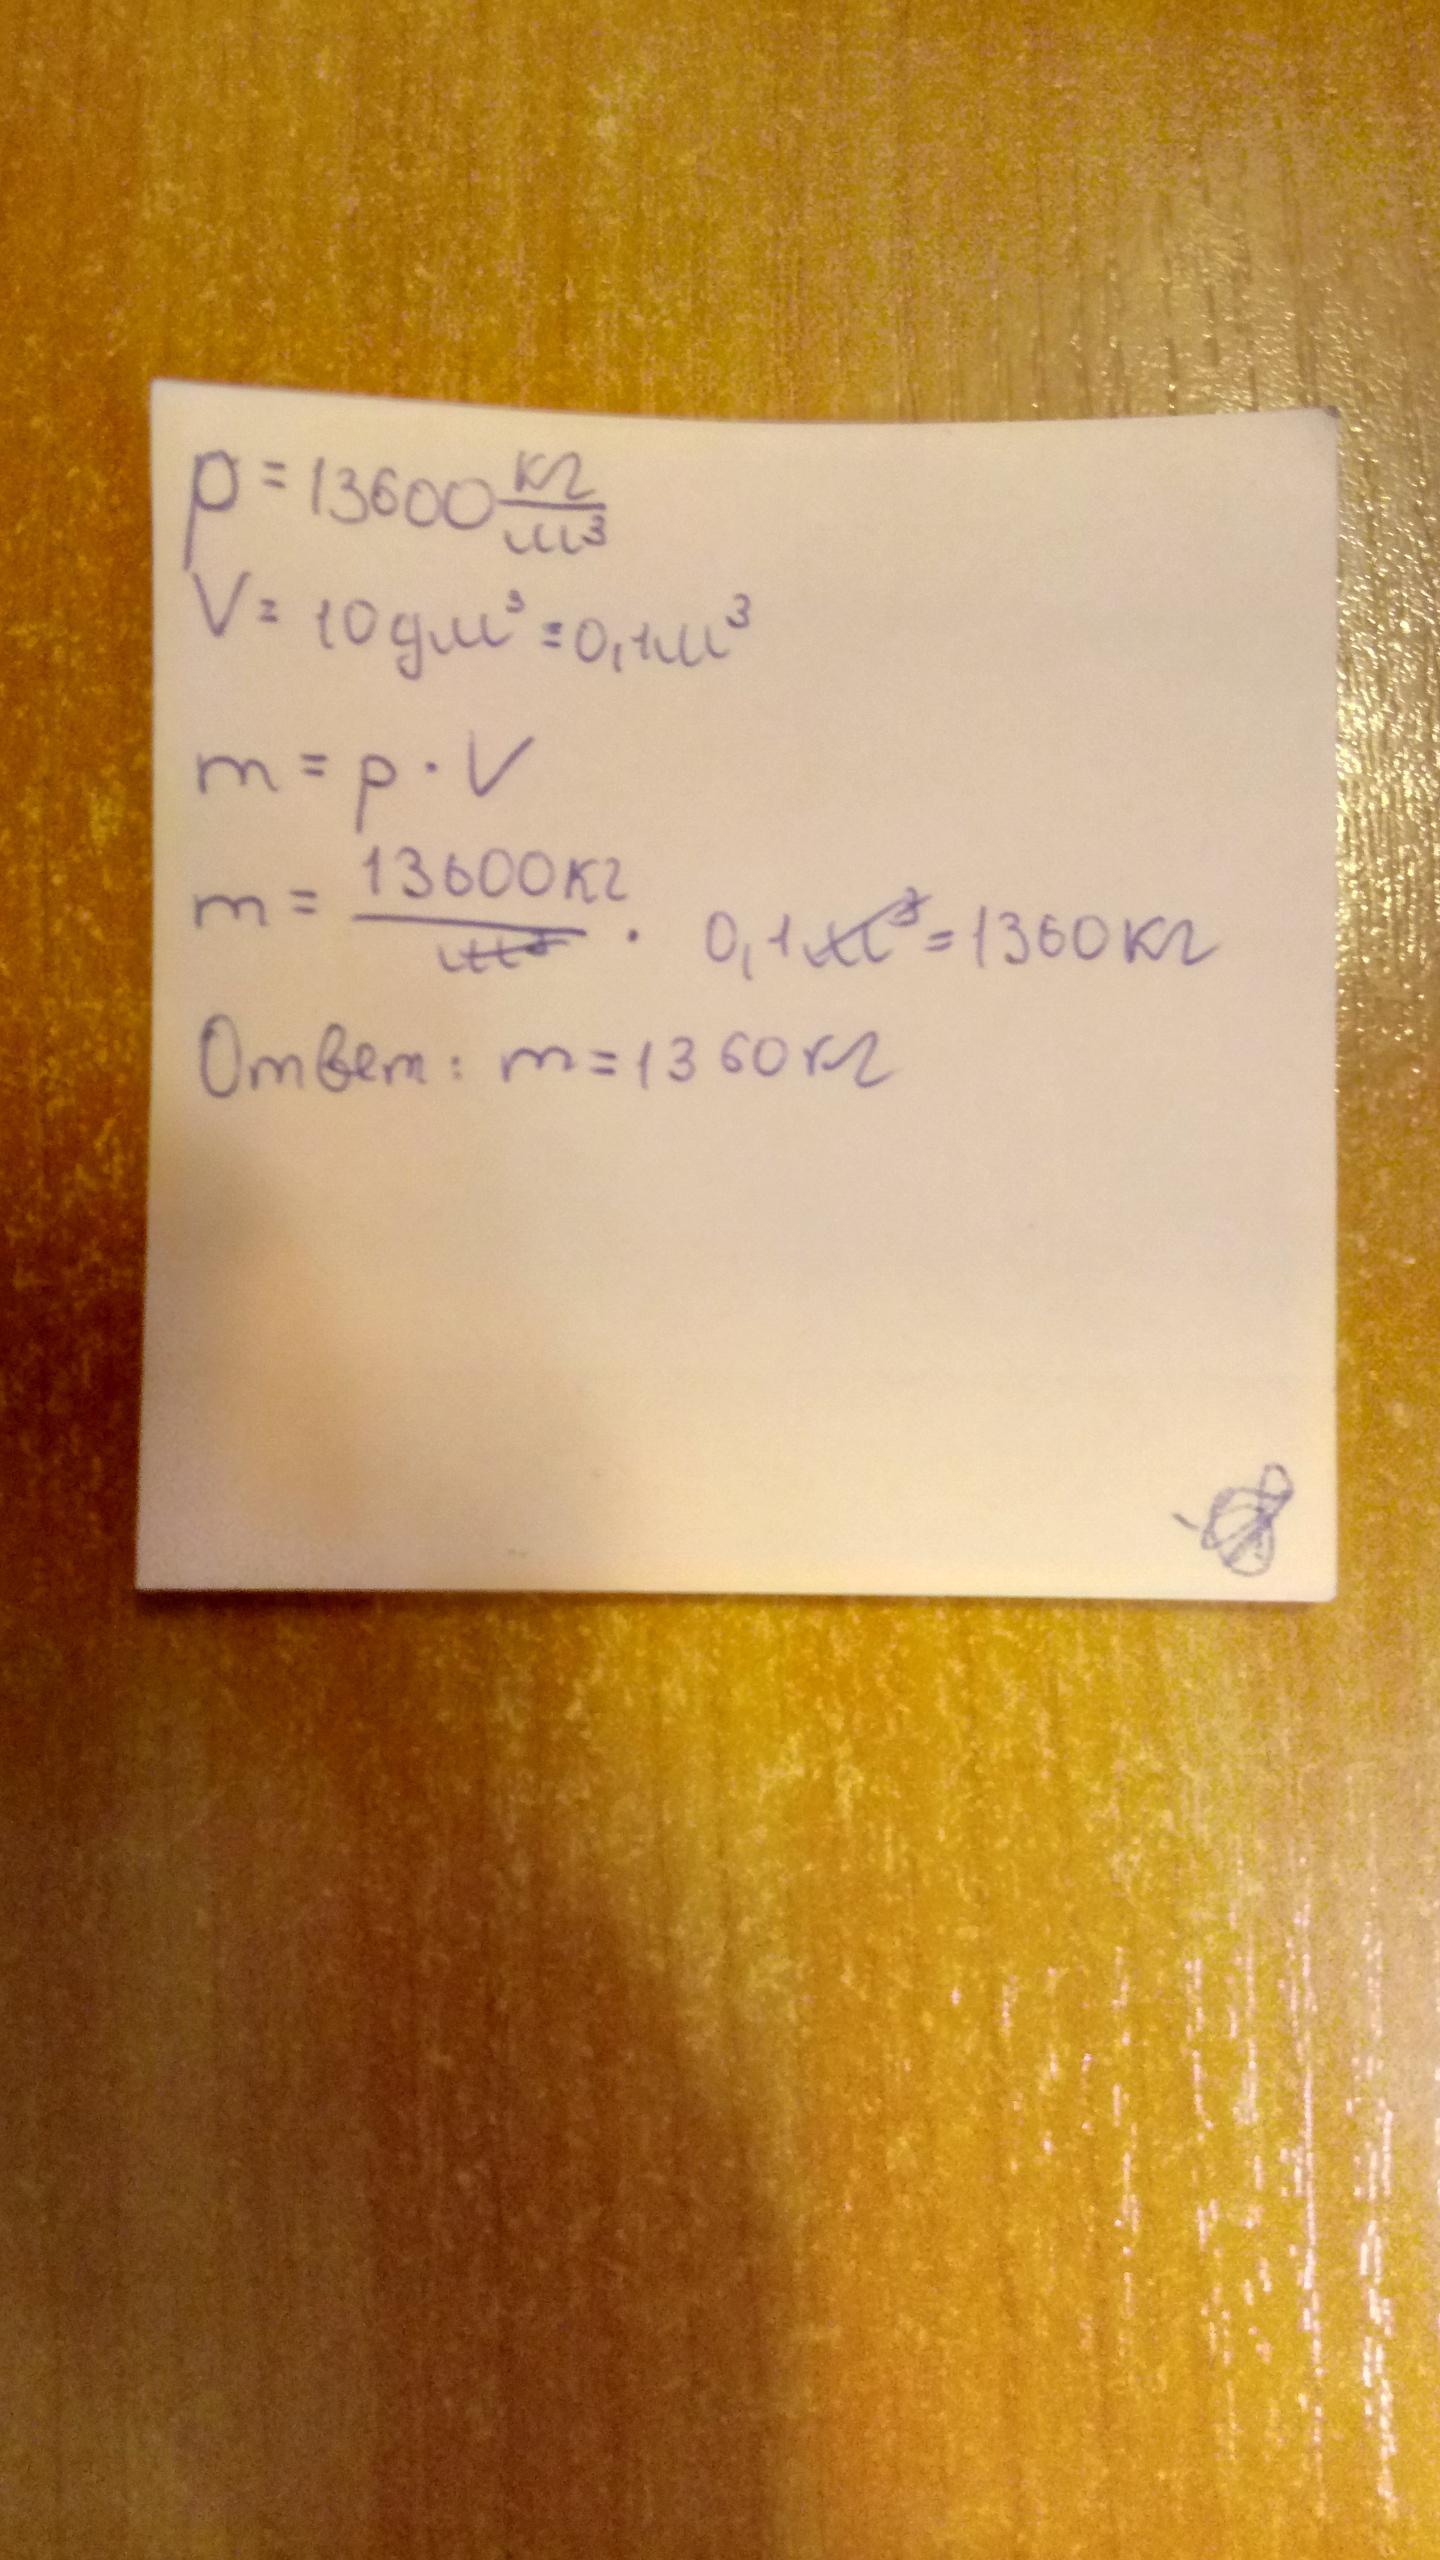 p = 13600 кг/м³
V = 10 дм³ = 0,1 м³
m = p · V
m = 13600 кг/м³ · 0,1 м³ = 1360 кг
Ответ: m = 1360 кг